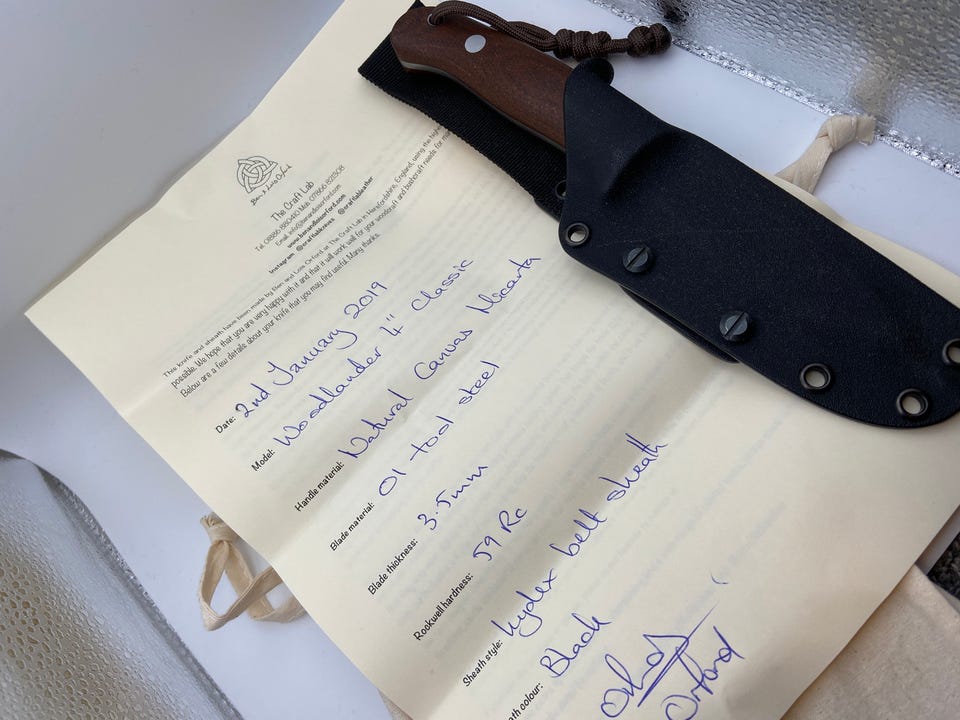 Ben & Lois Orford
The Craft Lab
Email: info@benandloisorford.com
www.benandloisorford.com
Instagram @craftlabknives @craftlableather
This knife and sheath have been made by Ben and Lois Orford at The Craft Lab in Herefordshire, England, using the highest
possible. We hope that you are very happy with it and that it will work well for your woodcraft and bushcraft needs for
Below are a few details about your knife that you may find useful. Many thanks.
Date: 2nd January 2019
Model: Woodlander 4" Classic
Handle material: Natural Canvas Micarta
Blade material: O1 tool steel
Blade thickness: 3.5mm
Rockwell hardness: 59 Rc
Sheath style: kydex belt sheath
ath colour: Black
Orford